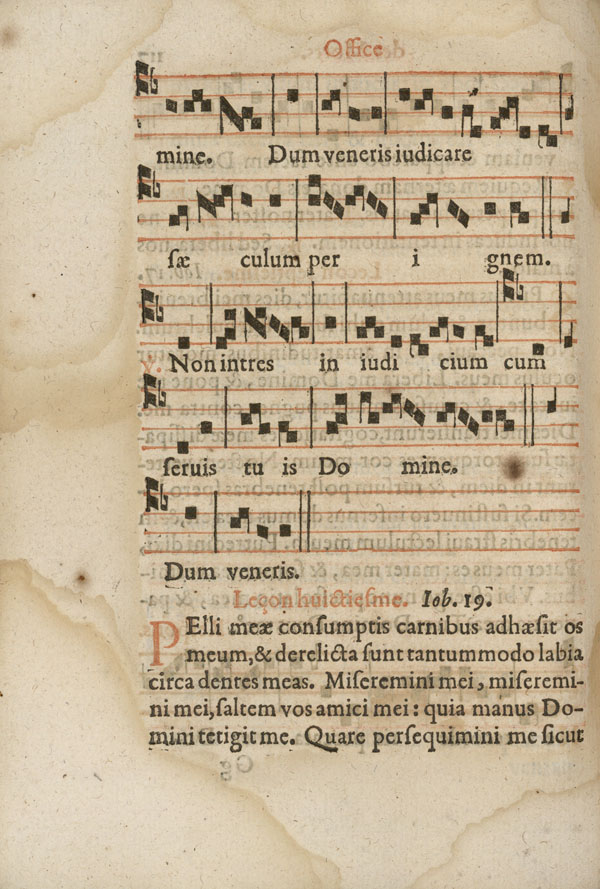 Office
mine. Dum veneris iudicare
ſæ culum per i gnem.
℣. Non intres in iudi cium cum
ſeruis tu is Do mine.
Dum veneris.
Leçon huictieſme. Iob. 19.
PElli meæ conſumptis carnibus adhæſit os
meum, & derelicta ſunt tantummodo labia
circa dentes meas. Miſeremini mei, miſeremi-
ni mei, ſaltem vos amici mei: quia manus Do-
mini tetigit me. Quare perſequimini me ſicut